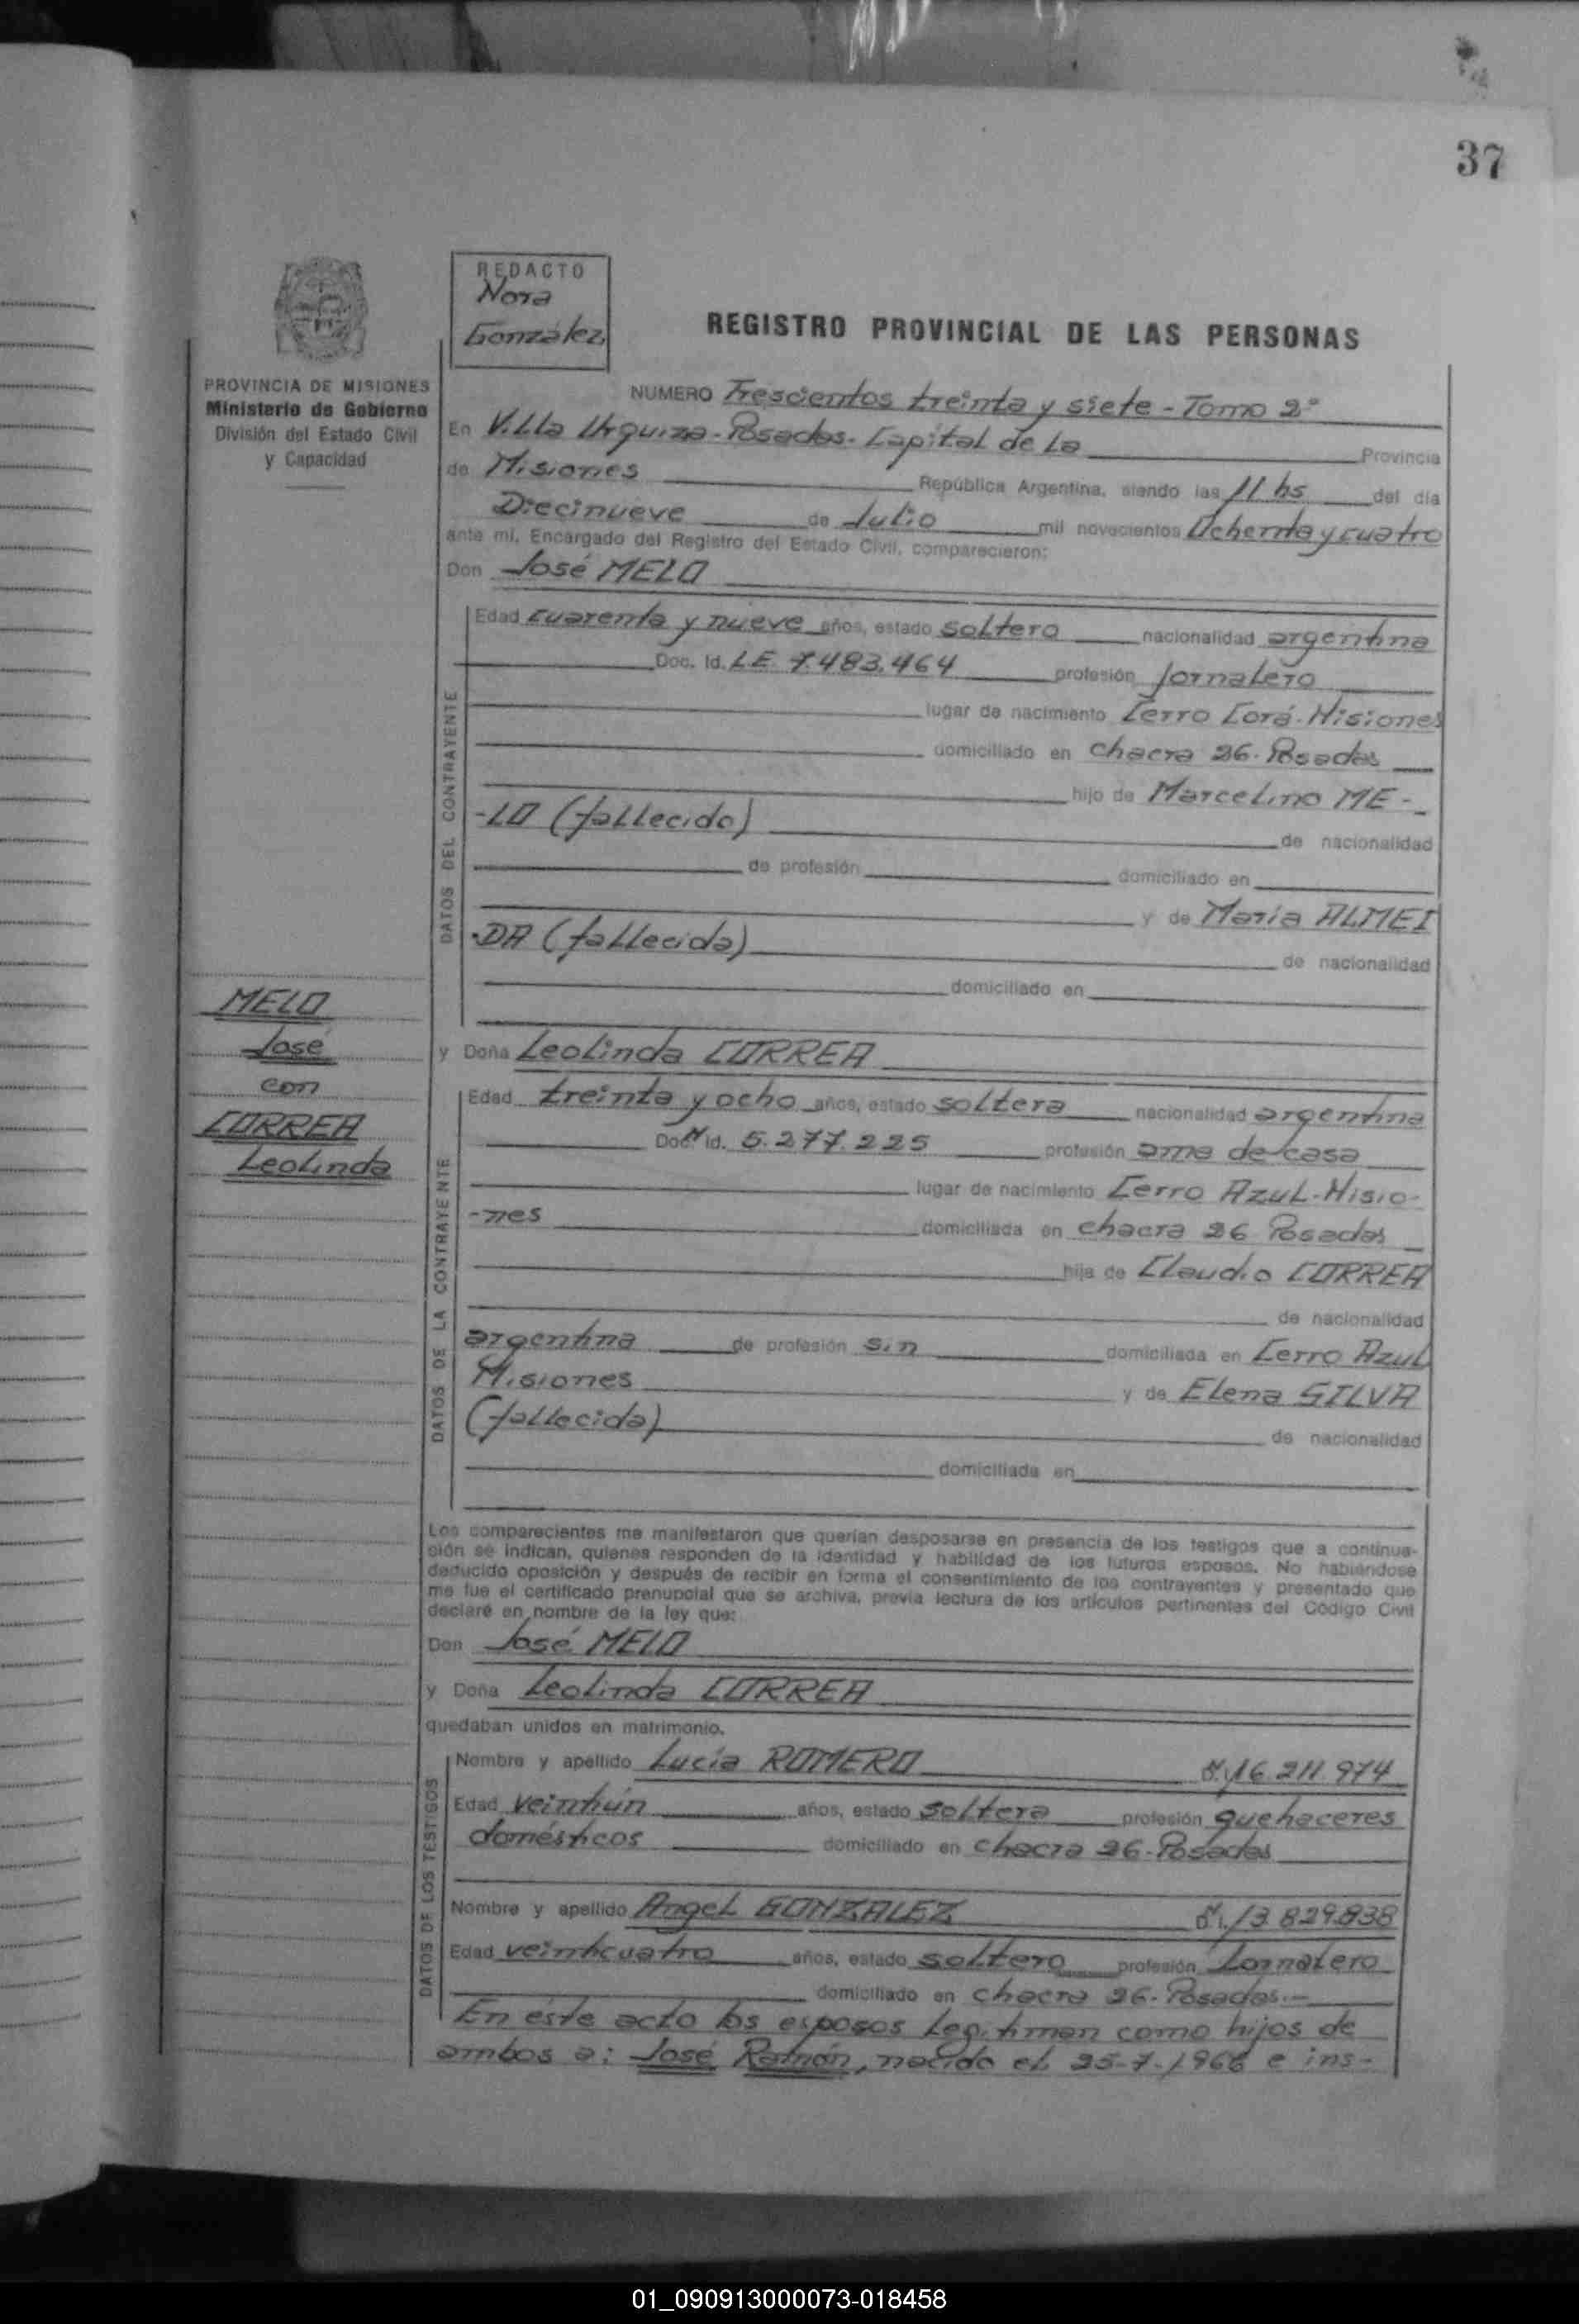 37
REDACTO
Nora
González
REGISTRO PROVINCIAL DE LAS PERSONAS
PROVINCIA DE MISIONES
Ministerio de Gobierno
División del Estado Civil
y Capacidad
NUMERO Trescientos treinta y siete - Tomo 2º
En Villa Urquiza - Posadas - Capital de la Provincia
de Misiones República Argentina, siendo las 11 hs del día
Diecinueve de Julio mil novecientos Ochenta y cuatro
ante mí, Encargado del Registro del Estado Civil, comparecieron:
Don José MELO
DATOS DEL CONTRAYENTE
Edad cuarenta y nueve años, estado soltero nacionalidad argentina
Doc. Id. L.E. 7.483.464 profesión Jornalero
lugar de nacimiento Cerro Corá - Misiones
domiciliado en chacra 26 - Posadas
hijo de Marcelino ME-
-LO (fallecido) de nacionalidad
de profesión domiciliado en
y de María ALMEI
-DA (fallecida) de nacionalidad
domiciliado en
MELO
José
con
CORREA
Leolinda
y Doña Leolinda CORREA
DATOS DE LA CONTRAYENTE
Edad treinta y ocho años, estado soltera nacionalidad argentina
Doc. Id. 5.277.225 profesión ama de casa
lugar de nacimiento Cerro Azul - Misio-
-nes domiciliada en chacra 26 Posadas
hija de Claudio CORREA
de nacionalidad
argentina de profesión sin domiciliada en Cerro Azul
Misiones y de Elena SILVA
(fallecida) de nacionalidad
domiciliada en
Los comparecientes me manifestaron que querían desposarse en presencia de los testigos que a continua-
ción se indican, quienes responden de la identidad y habilidad de los futuros esposos. No habiéndose
deducido oposición y después de recibir en forma el consentimiento de los contrayentes y presentado que
me fue el certificado prenupcial que se archiva, previa lectura de los artículos pertinentes del Código Civil
declaré en nombre de la ley que:
Don José MELO
y Doña Leolinda CORREA
quedaban unidos en matrimonio.
DATOS DE LOS TESTIGOS
Nombre y apellido Lucía ROMERO 16.211.974
Edad veintiún años, estado soltera profesión quehaceres
domésticos domiciliado en chacra 26 - Posadas
Nombre y apellido Angel GONZALEZ 13.829.838
Edad veinticuatro años, estado soltero profesión Jornalero
domiciliado en chacra 26 - Posadas.-
En éste acto los esposos legitiman como hijos de
ambos a: José Ramón, nacido el 25-7-1966 e ins-
01_090913000073-018458